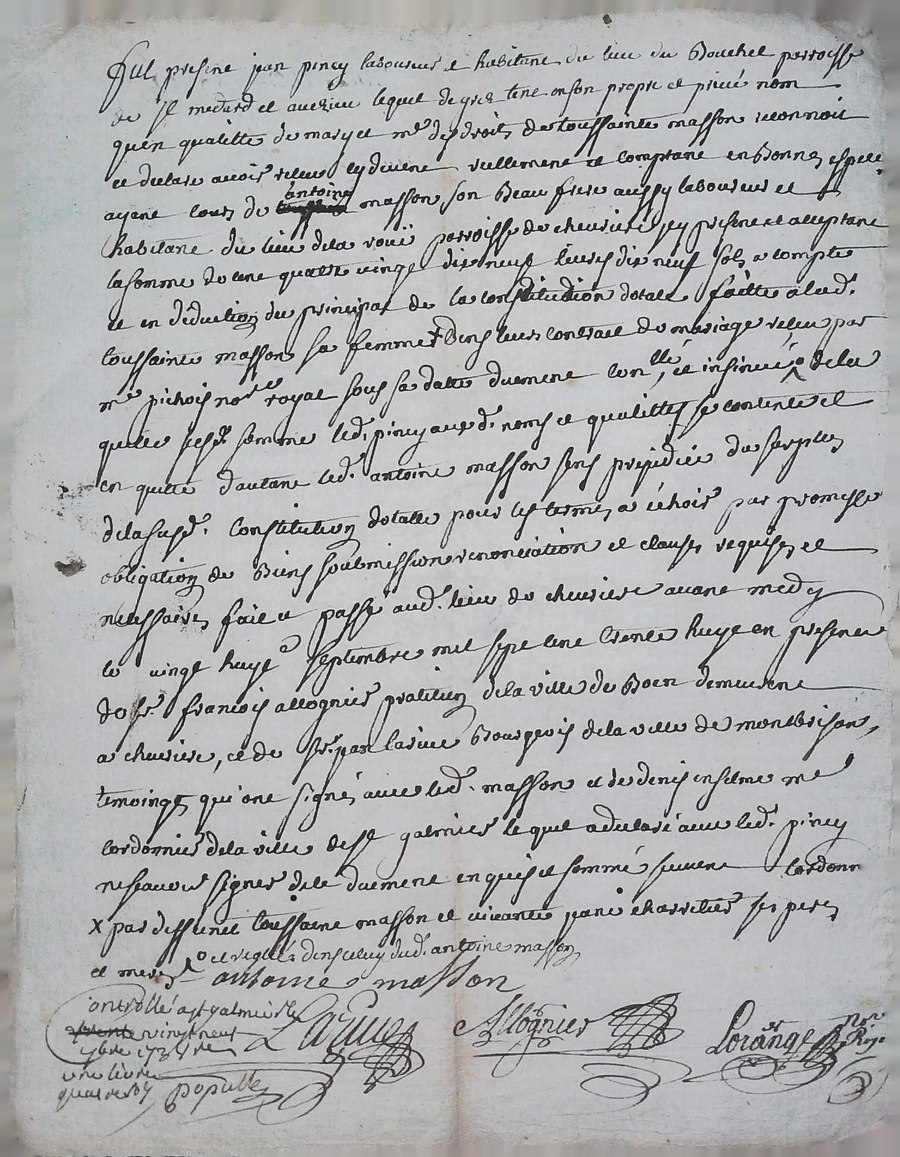 Fut présent jean pincy laboureur et habitant du lieu du Bouchet parroisse
de st medard et aveizieu lequel de gré tant en son propre et privé nom
qu'en quallitté de mary et me des droits de toussainte masson reconnoit
et déclare avoir reçeu cy devant réellement et comptant en Bonnes espèce
ayant cours de antoine masson son Beau frere aussy laboureur et
habitant du lieu de la roüé parroisse de chevriere icy présent et acceptant
la somme de cent quattre vingt dix neuf livres dix neuf sols a compte
et en déduction du principal de la constitution dotale faitte a lad.
toussainte masson sa femme x dans leur contrat de mariage reçeu par
me pichois nore royal sous sa datte duement con.llé, et insinué, o de la
quelle susd. somme led. pincy aux d. noms et quallittés se contente et
en quitte d'autant led. antoine masson sans préjudice du surplus
de la susd. constitution dotalle pour les termes a échoir par promesse
obligation de Biens soubmission renonciation et clauses requises et
nécessaires fait et passé aud. lieu de chevriere avant midy
le vingt huit septembre mil sept cent trente huit en présence
de sr. francois allognier praticien de la ville de Boen demeurant
a chevriere, et de sr. jean larüe Bourgeois de la ville de montbrison,
temoings qui ont signés avec led. masson et de denis enselme me
cordonnier de la ville de st galmier lequel a déclaré avec led. pincy
ne sçavoir signer de ce duement enquis et sommé suivant l'ordonn
x par deffunct toussaint masson et vivante jane charretier ses père
et mere o et réglés dans celuy dud. antoine masson
antoine masson
Larue
Allognier
Lorange nore Roy.
Controllé a st galmier le
vingt neuf
7bre 1738 Re
une livre
quatre sols
Populle